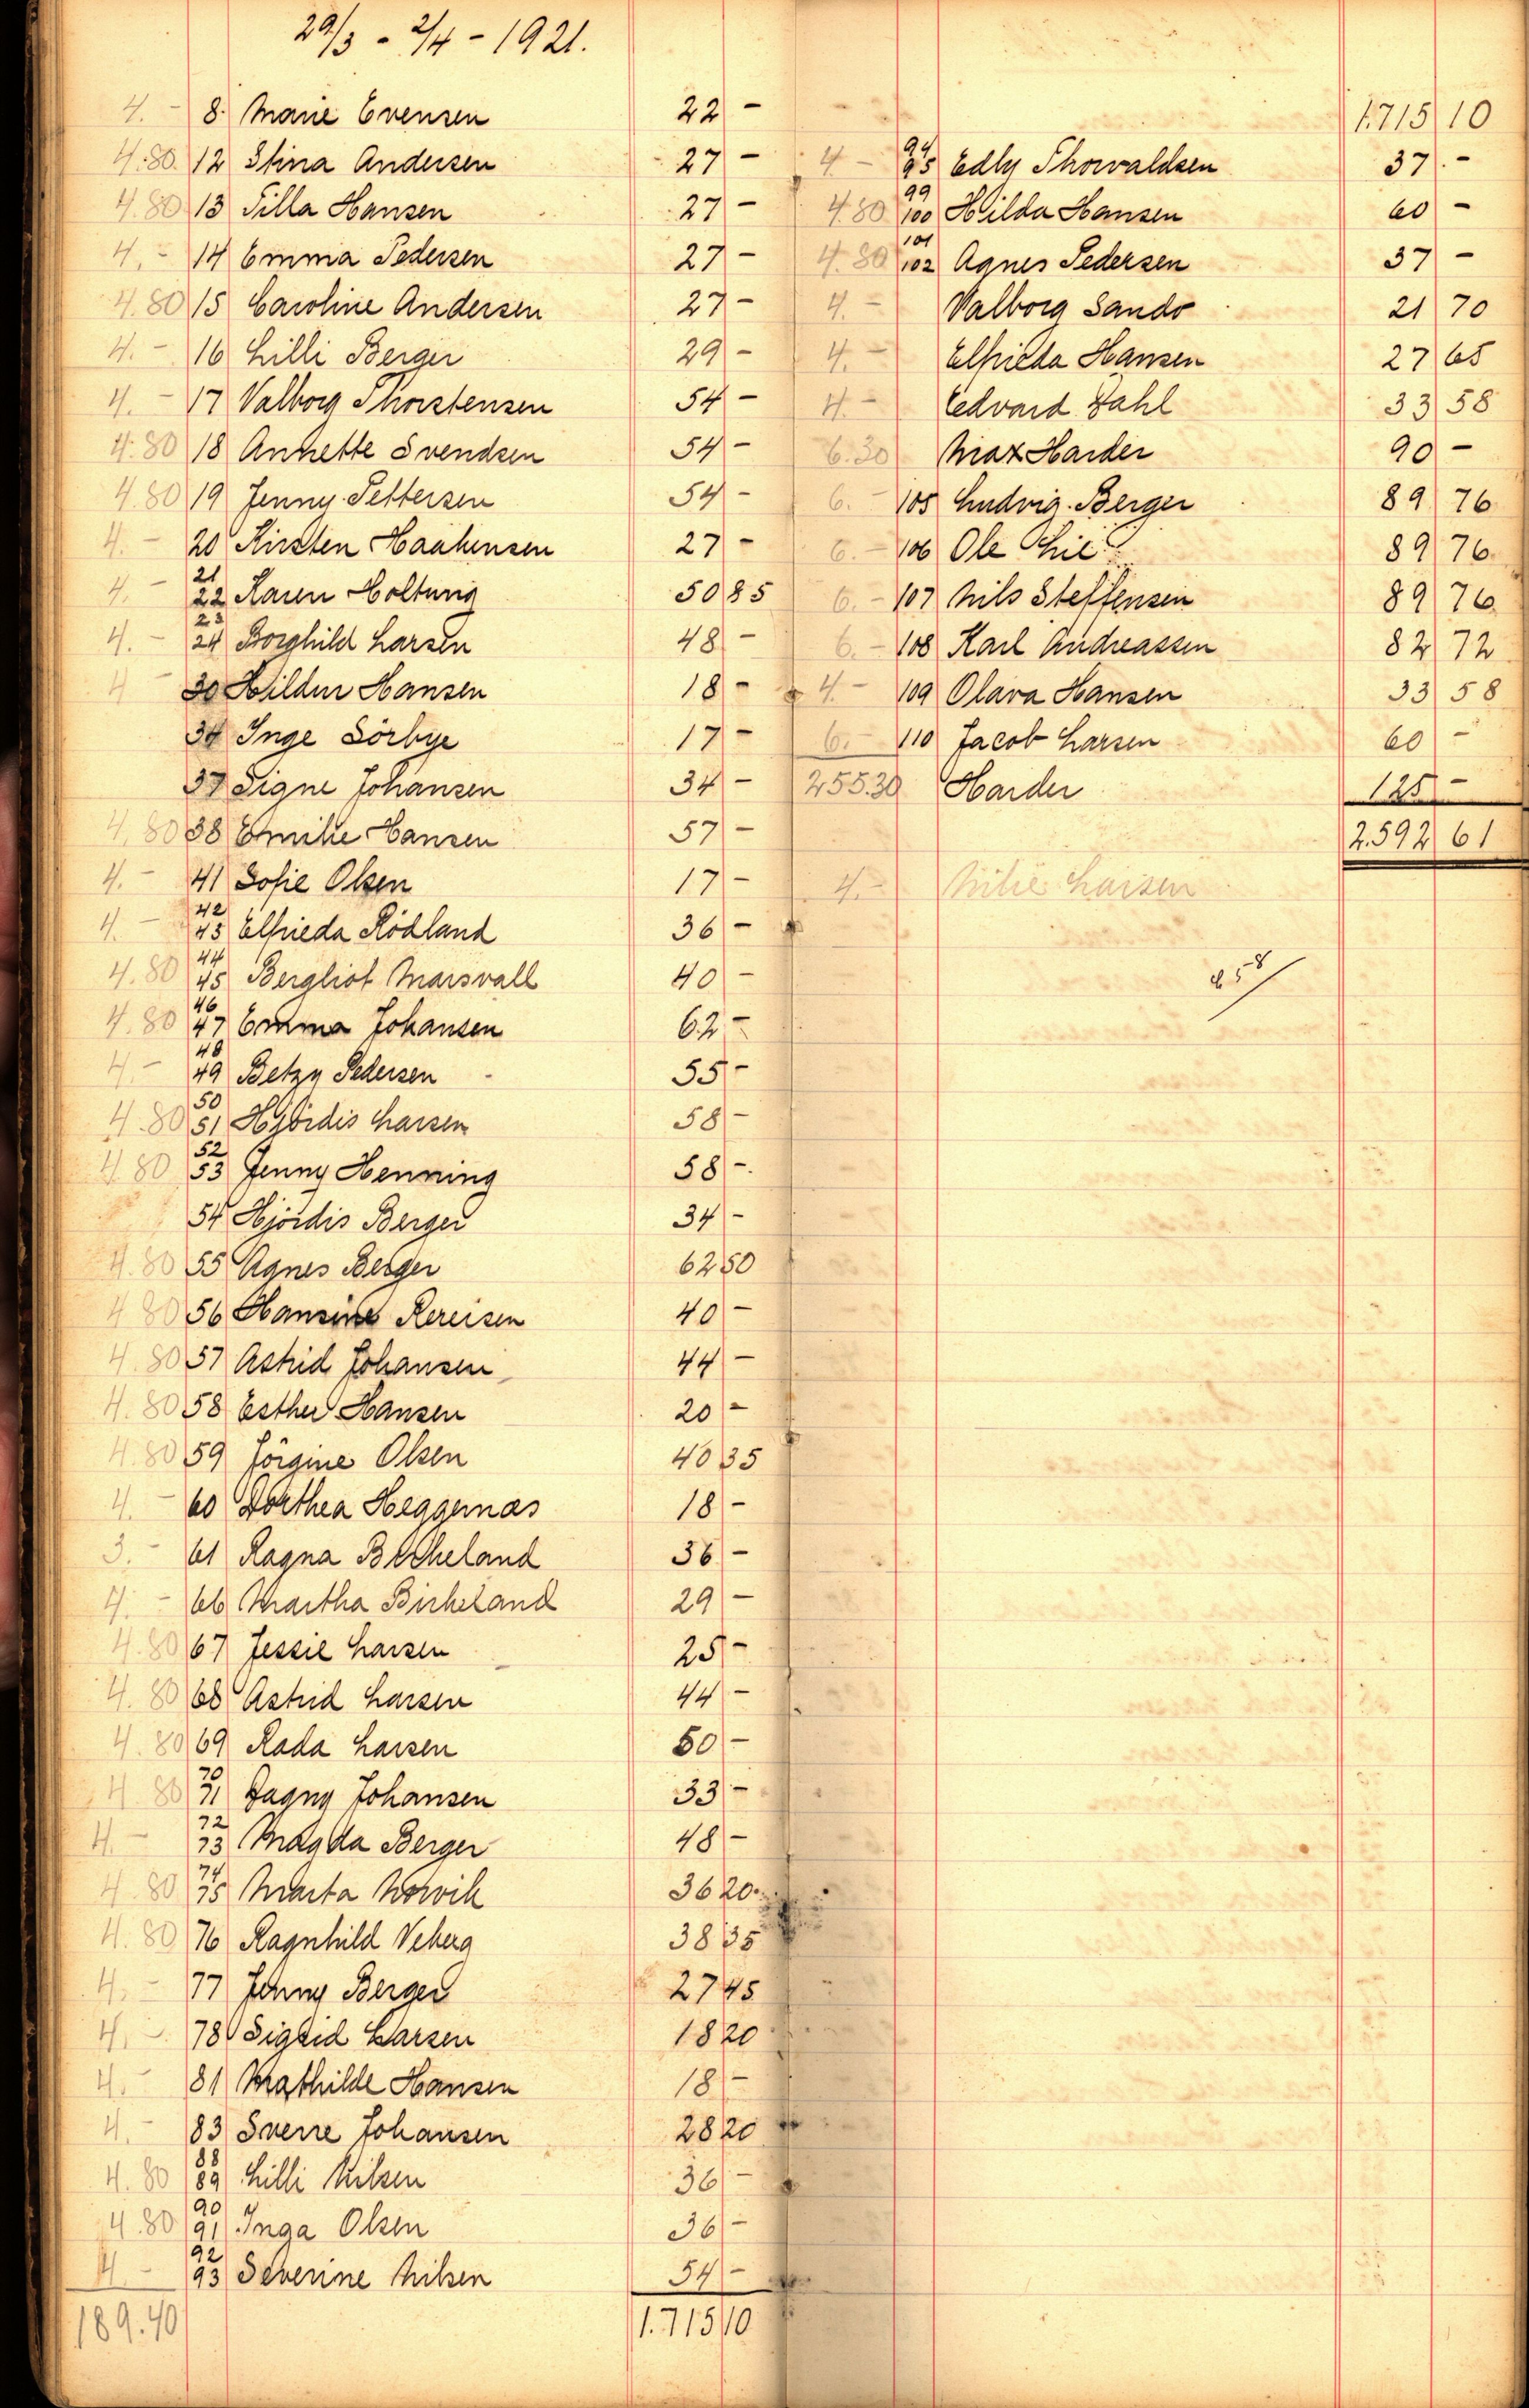 29/3 - 2/4 - 1921.
4. - 8. Marie Evensen 22 -
4.80. 12 Stina Andersen 27 -
4.80 13 Silla Hansen 27 -
4. - 14 Emma Pedersen 27 -
4.80 15 Caroline Andersen 27 -
4. - 16 Lilli Berger 29 -
4. - 17 Valborg Thorstensen 54 -
4.80 18 Annette Svendsen 54 -
4.80 19 Jenny Pettersen 54 -
4. - 20 Kirsten Haakensen 27 -
4. - 21 22 Karen Holtung 50 85
4. - 23 24 Borghild Larsen 48 -
4 - 30 Hildur Hansen 18 -
34 Inge Sörbye 17 -
37 Signe Johansen 34 -
4.80 38 Emilie Hansen 57 -
4. - 41 Sofie Olsen 17 -
4. - 42 43 Elfrieda Rödland 36 -
4.80 44 45 Bergliot Marsvall 40 -
4.80 46 47 Emma Johansen 62 -
4. - 48 49 Betzy Pedersen 55 -
4.80 50 51 Hjördis Larsen 58 -
4.80 52 53 Jenny Henning 58 -.
54 Hjördis Berger 34 -
4.80 55 Agnes Berger 62 50
4 80 56 Hansine 40 -
4.80 57 Astrid Johansen 44 -
4.80 58 Esther Hansen 20 -
4.80 59 Jörgine Olsen 40 35
4. - 60 Dorthea Heggernæs 18 -
3. - 61 Ragna Birkeland 36 -
4. - 66 Martha Birkeland 29 -
4.80 67 Jessie Larsen 25 -
4.80 68 Astrid Larsen 44 -
4.80 69 Rada Larsen 50 -
4.80 70 71 Dagny Johansen 33 -
4. - 72 73 Magda Berger 48 -
4.80 74 75 Marta 36 20
4.80 76 Ragnhild Veberg 38 35
4. - 77 Jenny Berger 27 45
4. - 78 Sigrid Larsen 18 20
4. - 81 Mathilde Hansen 18 -
4. - 83 Sverre Johansen 28 20
4.80 88 89 Lilli Nilsen 36 -
4.80 90 91 Inga Olsen 36 -
4 - 92 93 Severine Nilsen 54 -
189.40 1.715 10
1.715 10
4 - 94 95 Edly Thorvaldsen 37. -
4.80 99 100 Hilda Hansen 60 -
4.80 101 102 Agnes Pedersen 37 -
4. - Valborg Sando 21 70
4. - Elfrieda Hansen 27 65
4. - Edvard Dahl 33 58
6.30 Max Harder 90 -
6. - 105 Ludvig Berger 89 76
6. - 106 Ole Lie 89 76
6. - 107 Nils Steffensen 89 76
6. - 108 Karl Andreassen 82 72
4. - 109 Olava Hansen 33 58
6. - 110 Jacob Larsen 60 -
255.30 Harder 125 -
2.592 61
4. - Milie Larsen